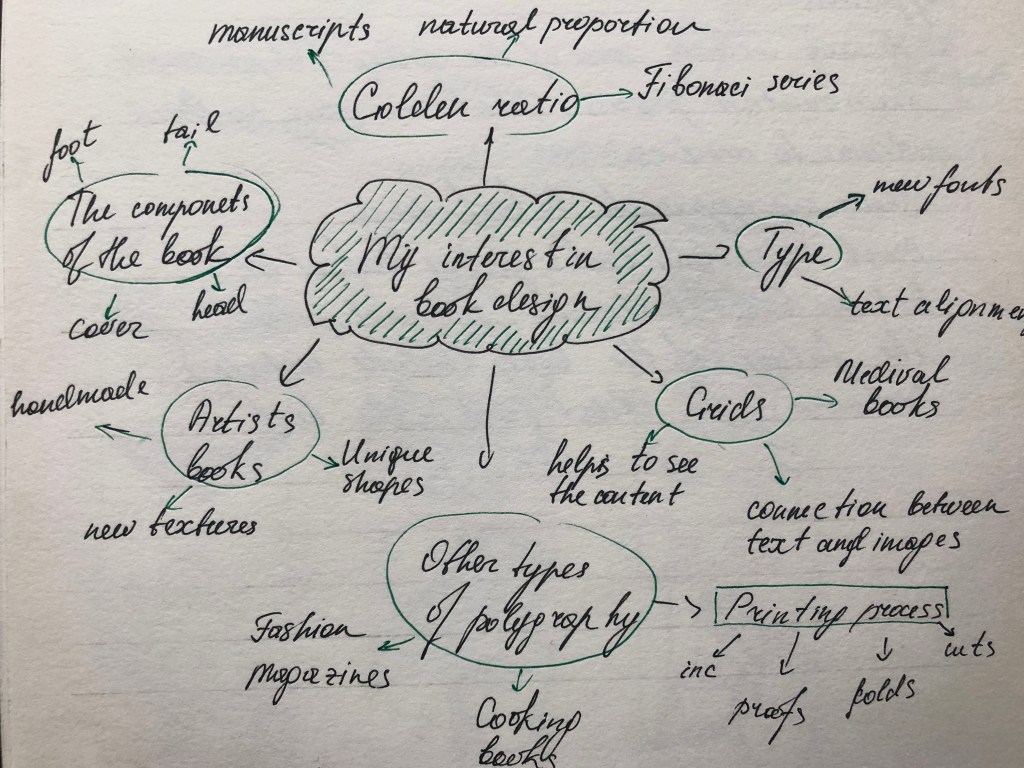 manuscripts
natural proportion
Golden ratio
Fibonaci series
foot
tail
The componets
of the book
cover
head
My interest in
book design
Type
new fonts
text alignmen
Artists
books
handmade
Unique
shapes
new textures
Grids
Medival
books
helps to see
the content
connection between
text and images
Other types
of polygraphy
Fashion
magazines
Cooking
books
Printing process
inc
proofs
folds
cuts